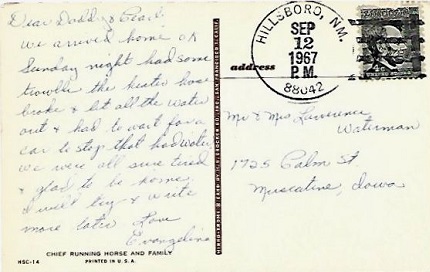 Dear Dodd & Pearl.
We arrived home OK
Sunday night had some
trouble the heater hose
broke & let all the water
out & had to wait for a
car to stop that had water
we were all sure tired
& glad to be home
I will try & write
more later Love
Evangeline
CHIEF RUNNING HORSE AND FAMILY
HSC-14 PRINTED IN U.S.A.
address
HILLSBORO, NM.
SEP
12
1967
P.M.
88042
Mr & Mrs Lawrence
Waterman
1725 Palm St
Muscatine, Iowa